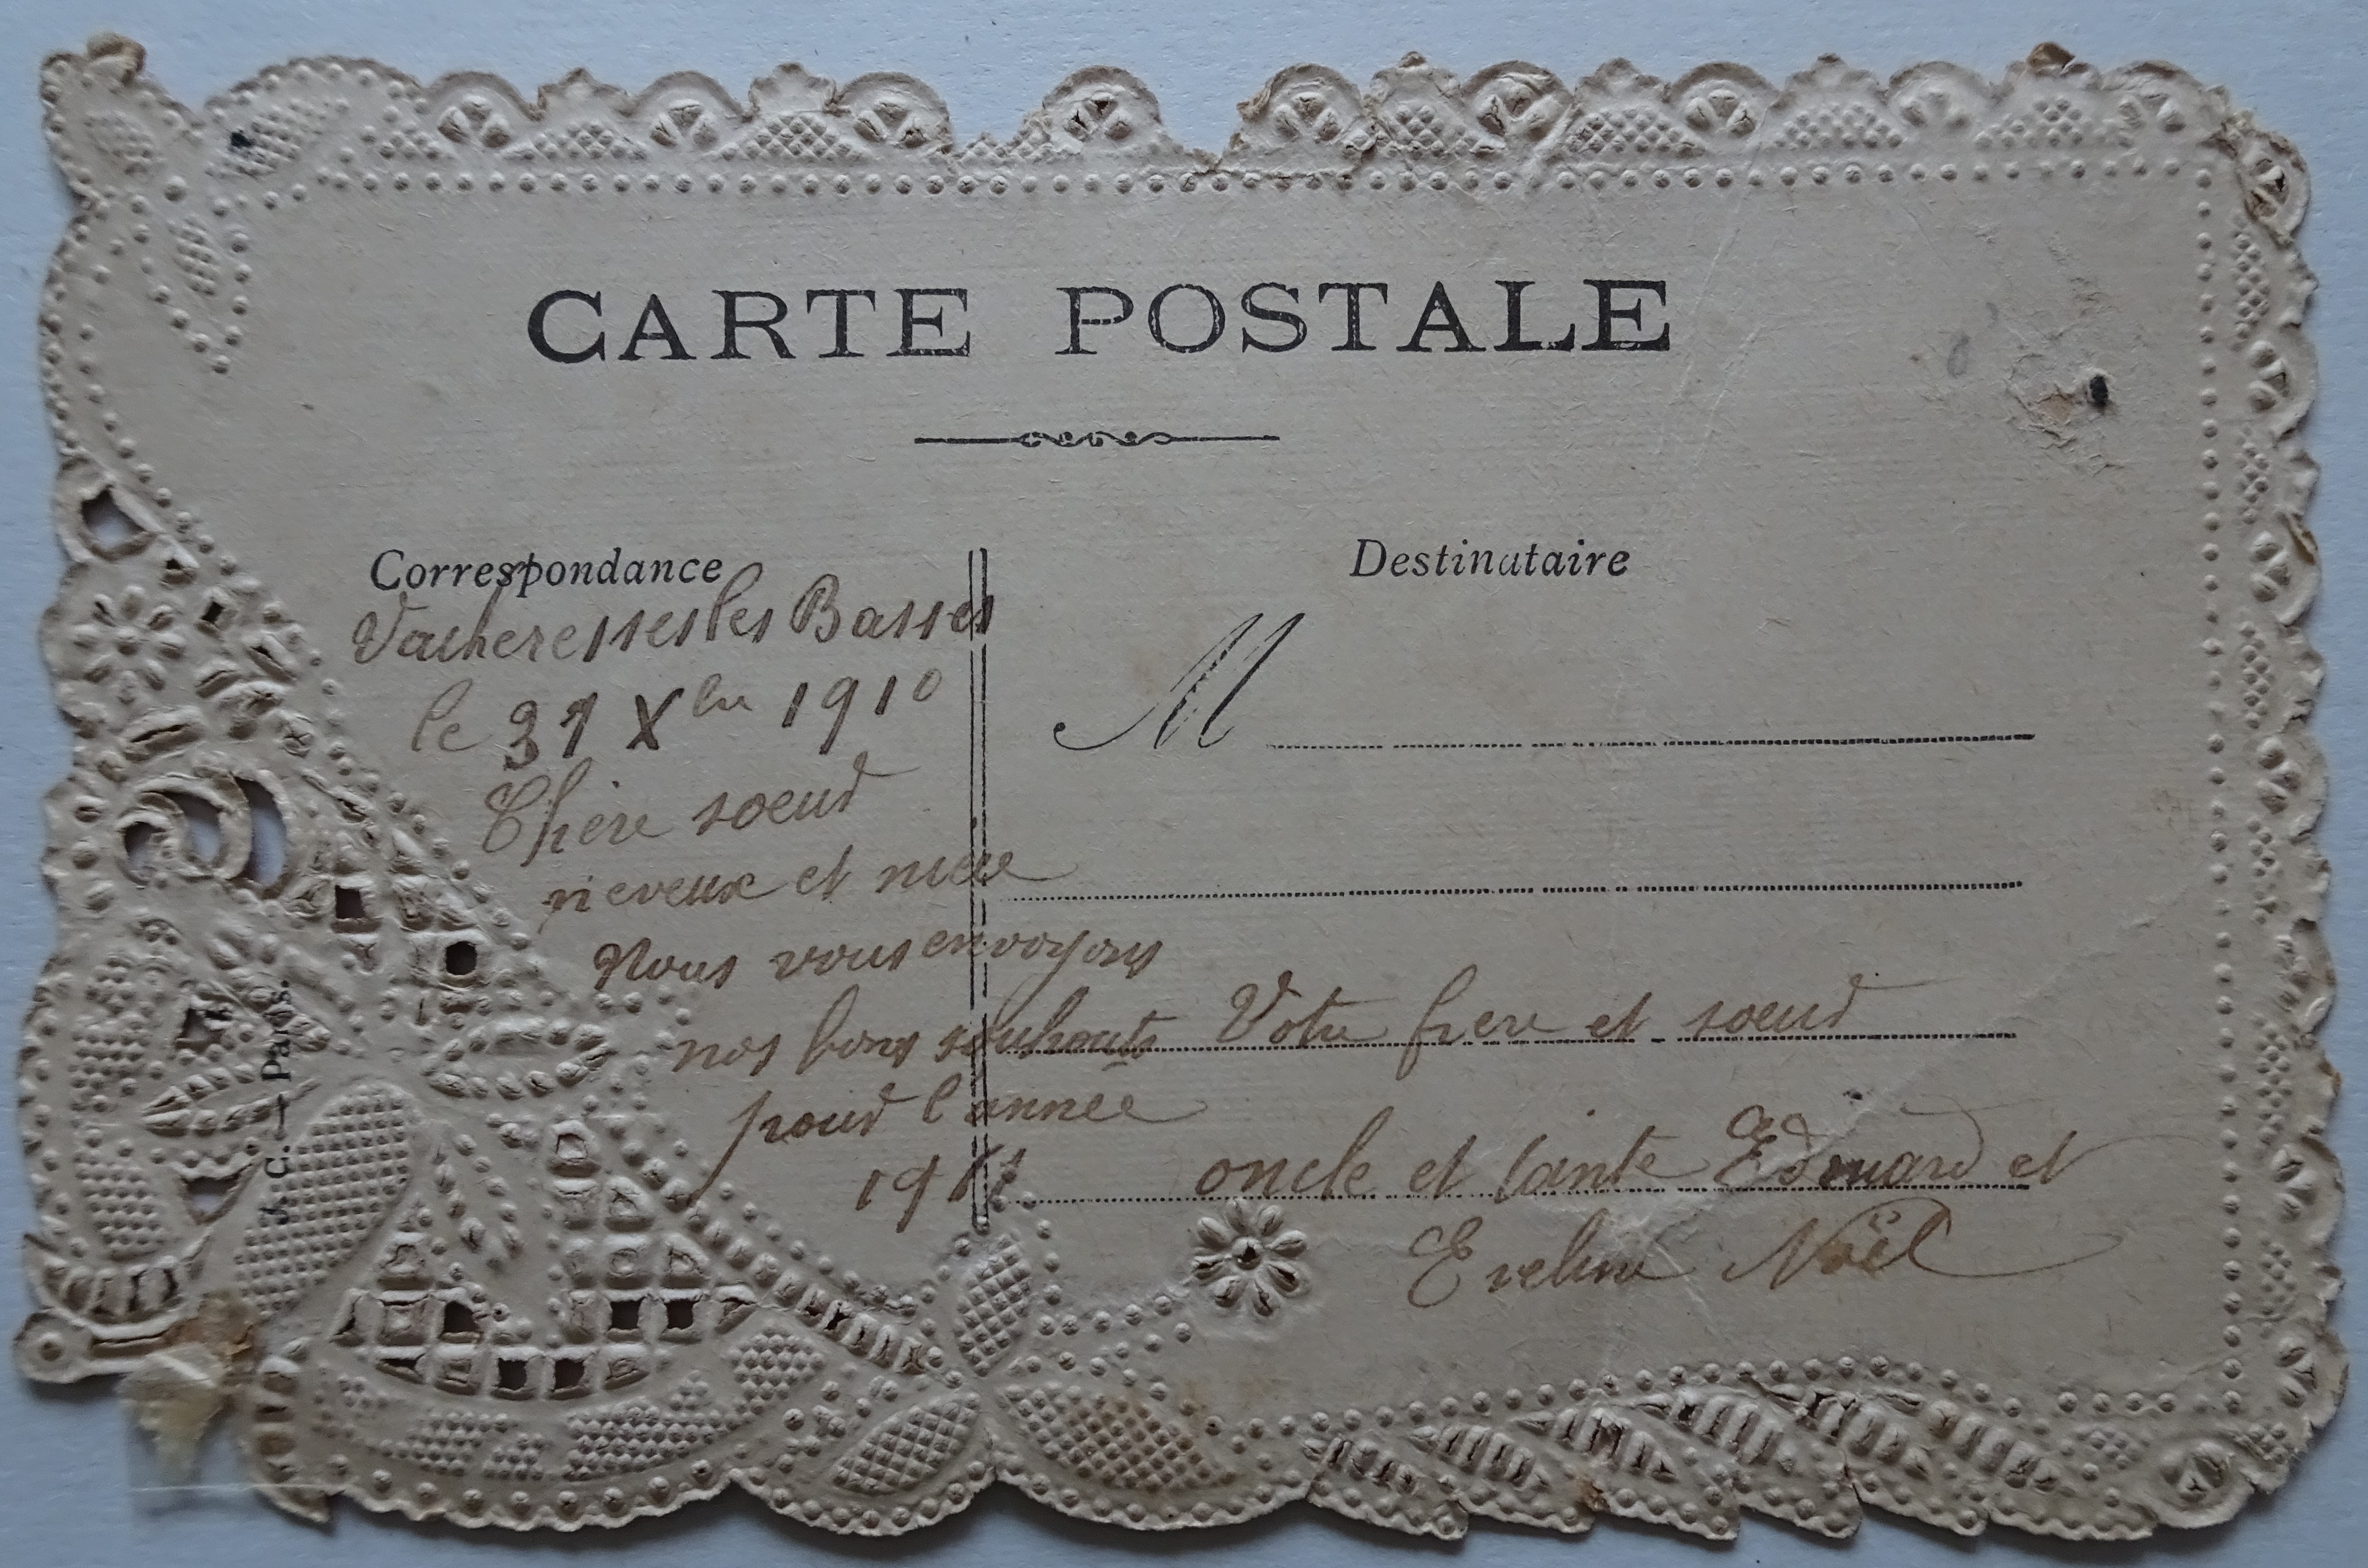 CARTE POSTALE
Correspondance
Destinataire
Vacheresses les Basses
le 31 Xbre 1910
M
Chère soeur
neveux et niece
Nous vous envoyons
nos bons souhaits
pour l'année
1911
Votre frere et soeur
oncle et tante Edouard et
Eveline Noël
A. C. — Paris.